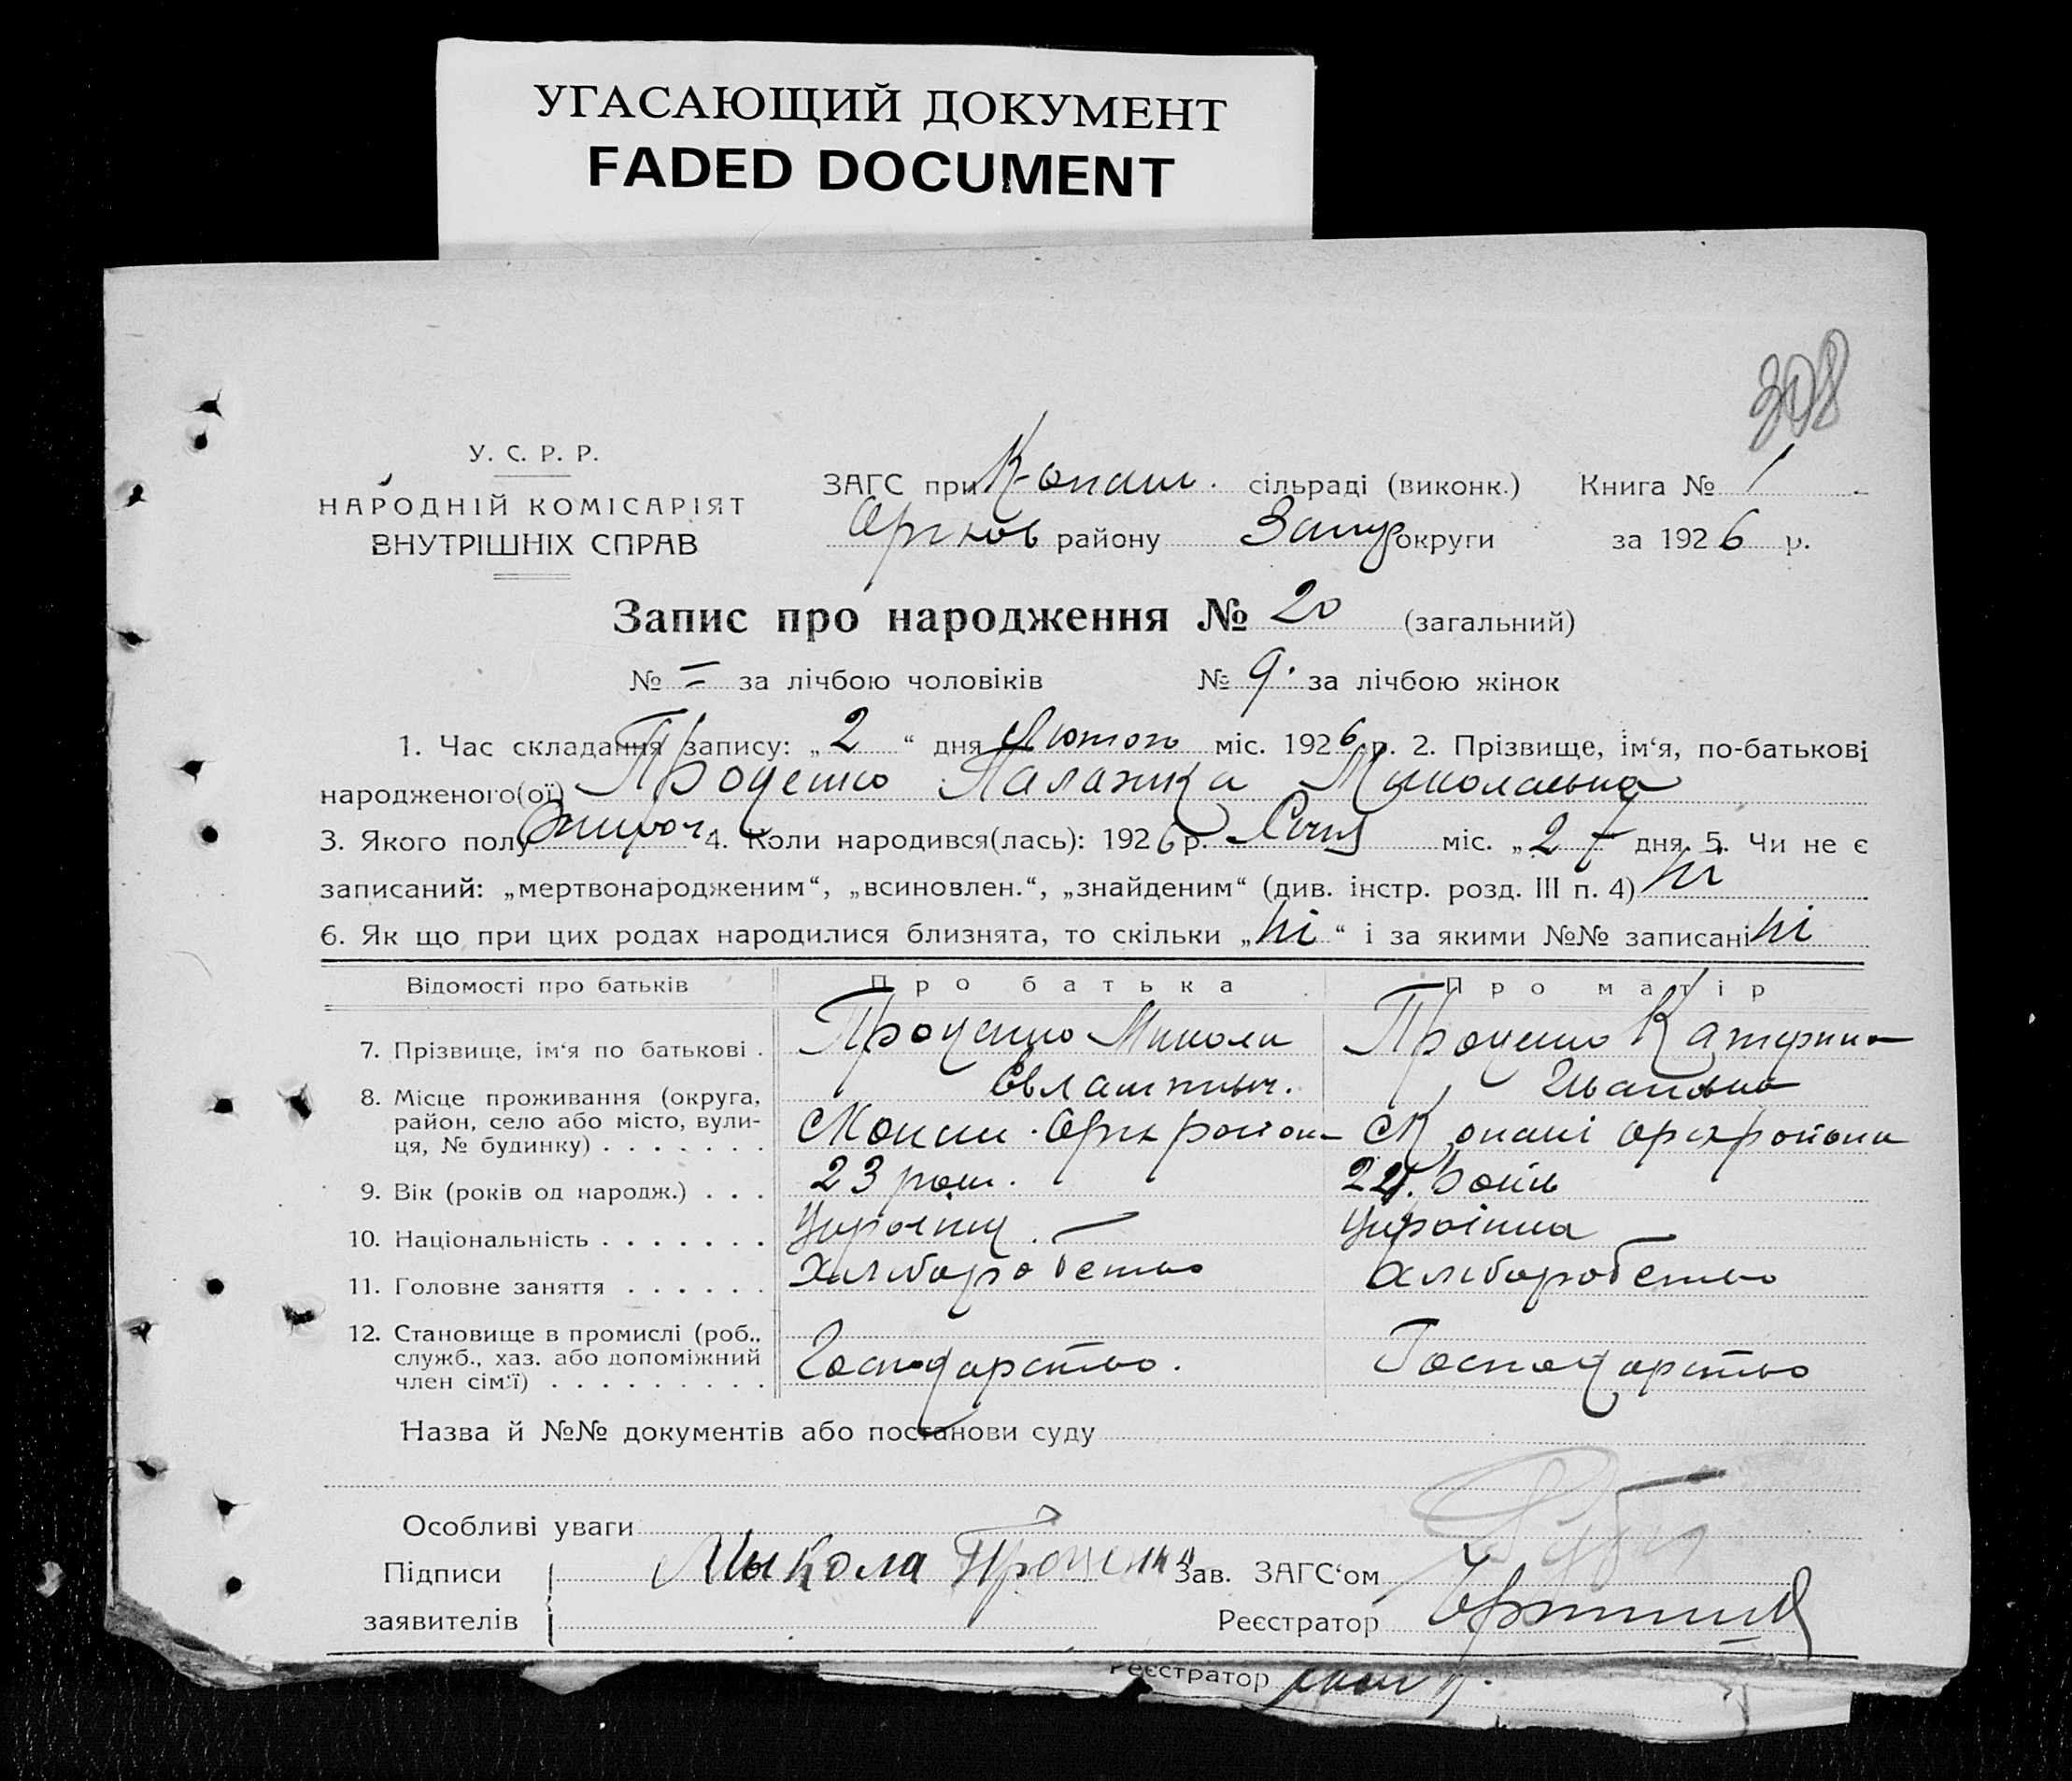 УГАСАЮЩИЙ ДОКУМЕНТ
FADED DOCUMENT
308
У. С. Р. Р.
НАРОДНІЙ КОМІСАРІЯТ
ВНУТРІШНІХ СПРАВ
ЗАГС при Копан. сільраді (виконк.) Книга № 1
Оріхов району Запор округи за 1926 р.
Запис про народження № 20 (загальний)
№ = за лічбою чоловіків № 9. за лічбою жінок
1. Час складання запису: „2“ дня Лютого міс. 1926 р. 2. Прізвище, ім‘я, по-батькові
народженого(ої) Проценко Палажка Миколаевна
3. Якого полу 4. Коли народився(лась): 1926 р. Січня міс. „27 дня. 5. Чи не є
записаний: „мертвонародженим“, „всиновлен.“, „знайденим“ (див. інстр. розд. III п. 4) ні
6. Як що при цих родах народилися близнята, то скільки „ні“ і за якими №№ записані ні
Відомості про батьків Про батька Про матір
7. Прізвище, ім‘я по батькові . Проценко Миколи Проценко Катерина
Евлампиич. Ивановна
8. Місце проживання (округа,
район, село або місто, вули-
ця, № будинку) . . . . . . . С Копани Оріх района С Копані оріхрайона
9. Вік (років од народж.) . . . 23 роки. 22.
10. Національність . . . . . . . Украінец. Украінка
11. Головне заняття . . . . . . Хлиборобство Хлиборобство
12. Становище в промислі (роб.,
служб., хаз. або допоміжний
член сім‘ї) . . . . . . . . . Господарство. Господарство
Назва й №№ документів або постанови суду
Особливі уваги
Підписи Мыкола Проценк Зав. ЗАГС‘ом
заявителів Реєстратор
Реєстратор